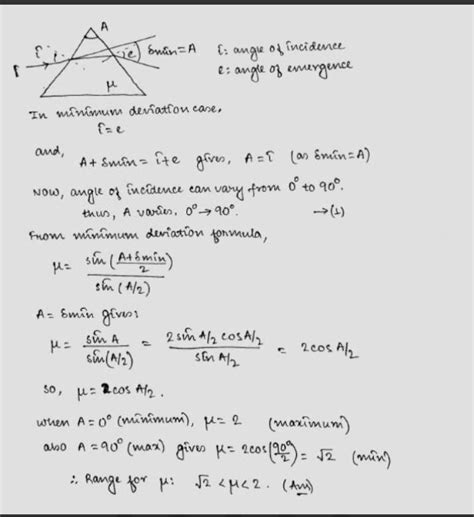 A
î i e δmin = A î : angle of incidence
I e : angle of emergence
μ
In minimum deviation case,
î = e
and,
A + δmin = î + e gives, A = î (as δmin = A)
Now, angle of incidence can vary from 0° to 90°.
thus, A varies, 0° → 90°. → (1)
From minimum deviation formula,
μ = sin ( (A + δmin)/2 ) / sin (A/2)
A = δmin gives:
μ = sin A / sin (A/2) = 2 sin A/2 cos A/2 / sin A/2 = 2 cos A/2
so, μ = 2 cos A/2 .
when A = 0° (minimum), μ = 2 (maximum)
also A = 90° (max) gives μ = 2 cos (90°/2) = √2 (min)
∴ Range for μ : √2 < μ < 2 . (Ans)